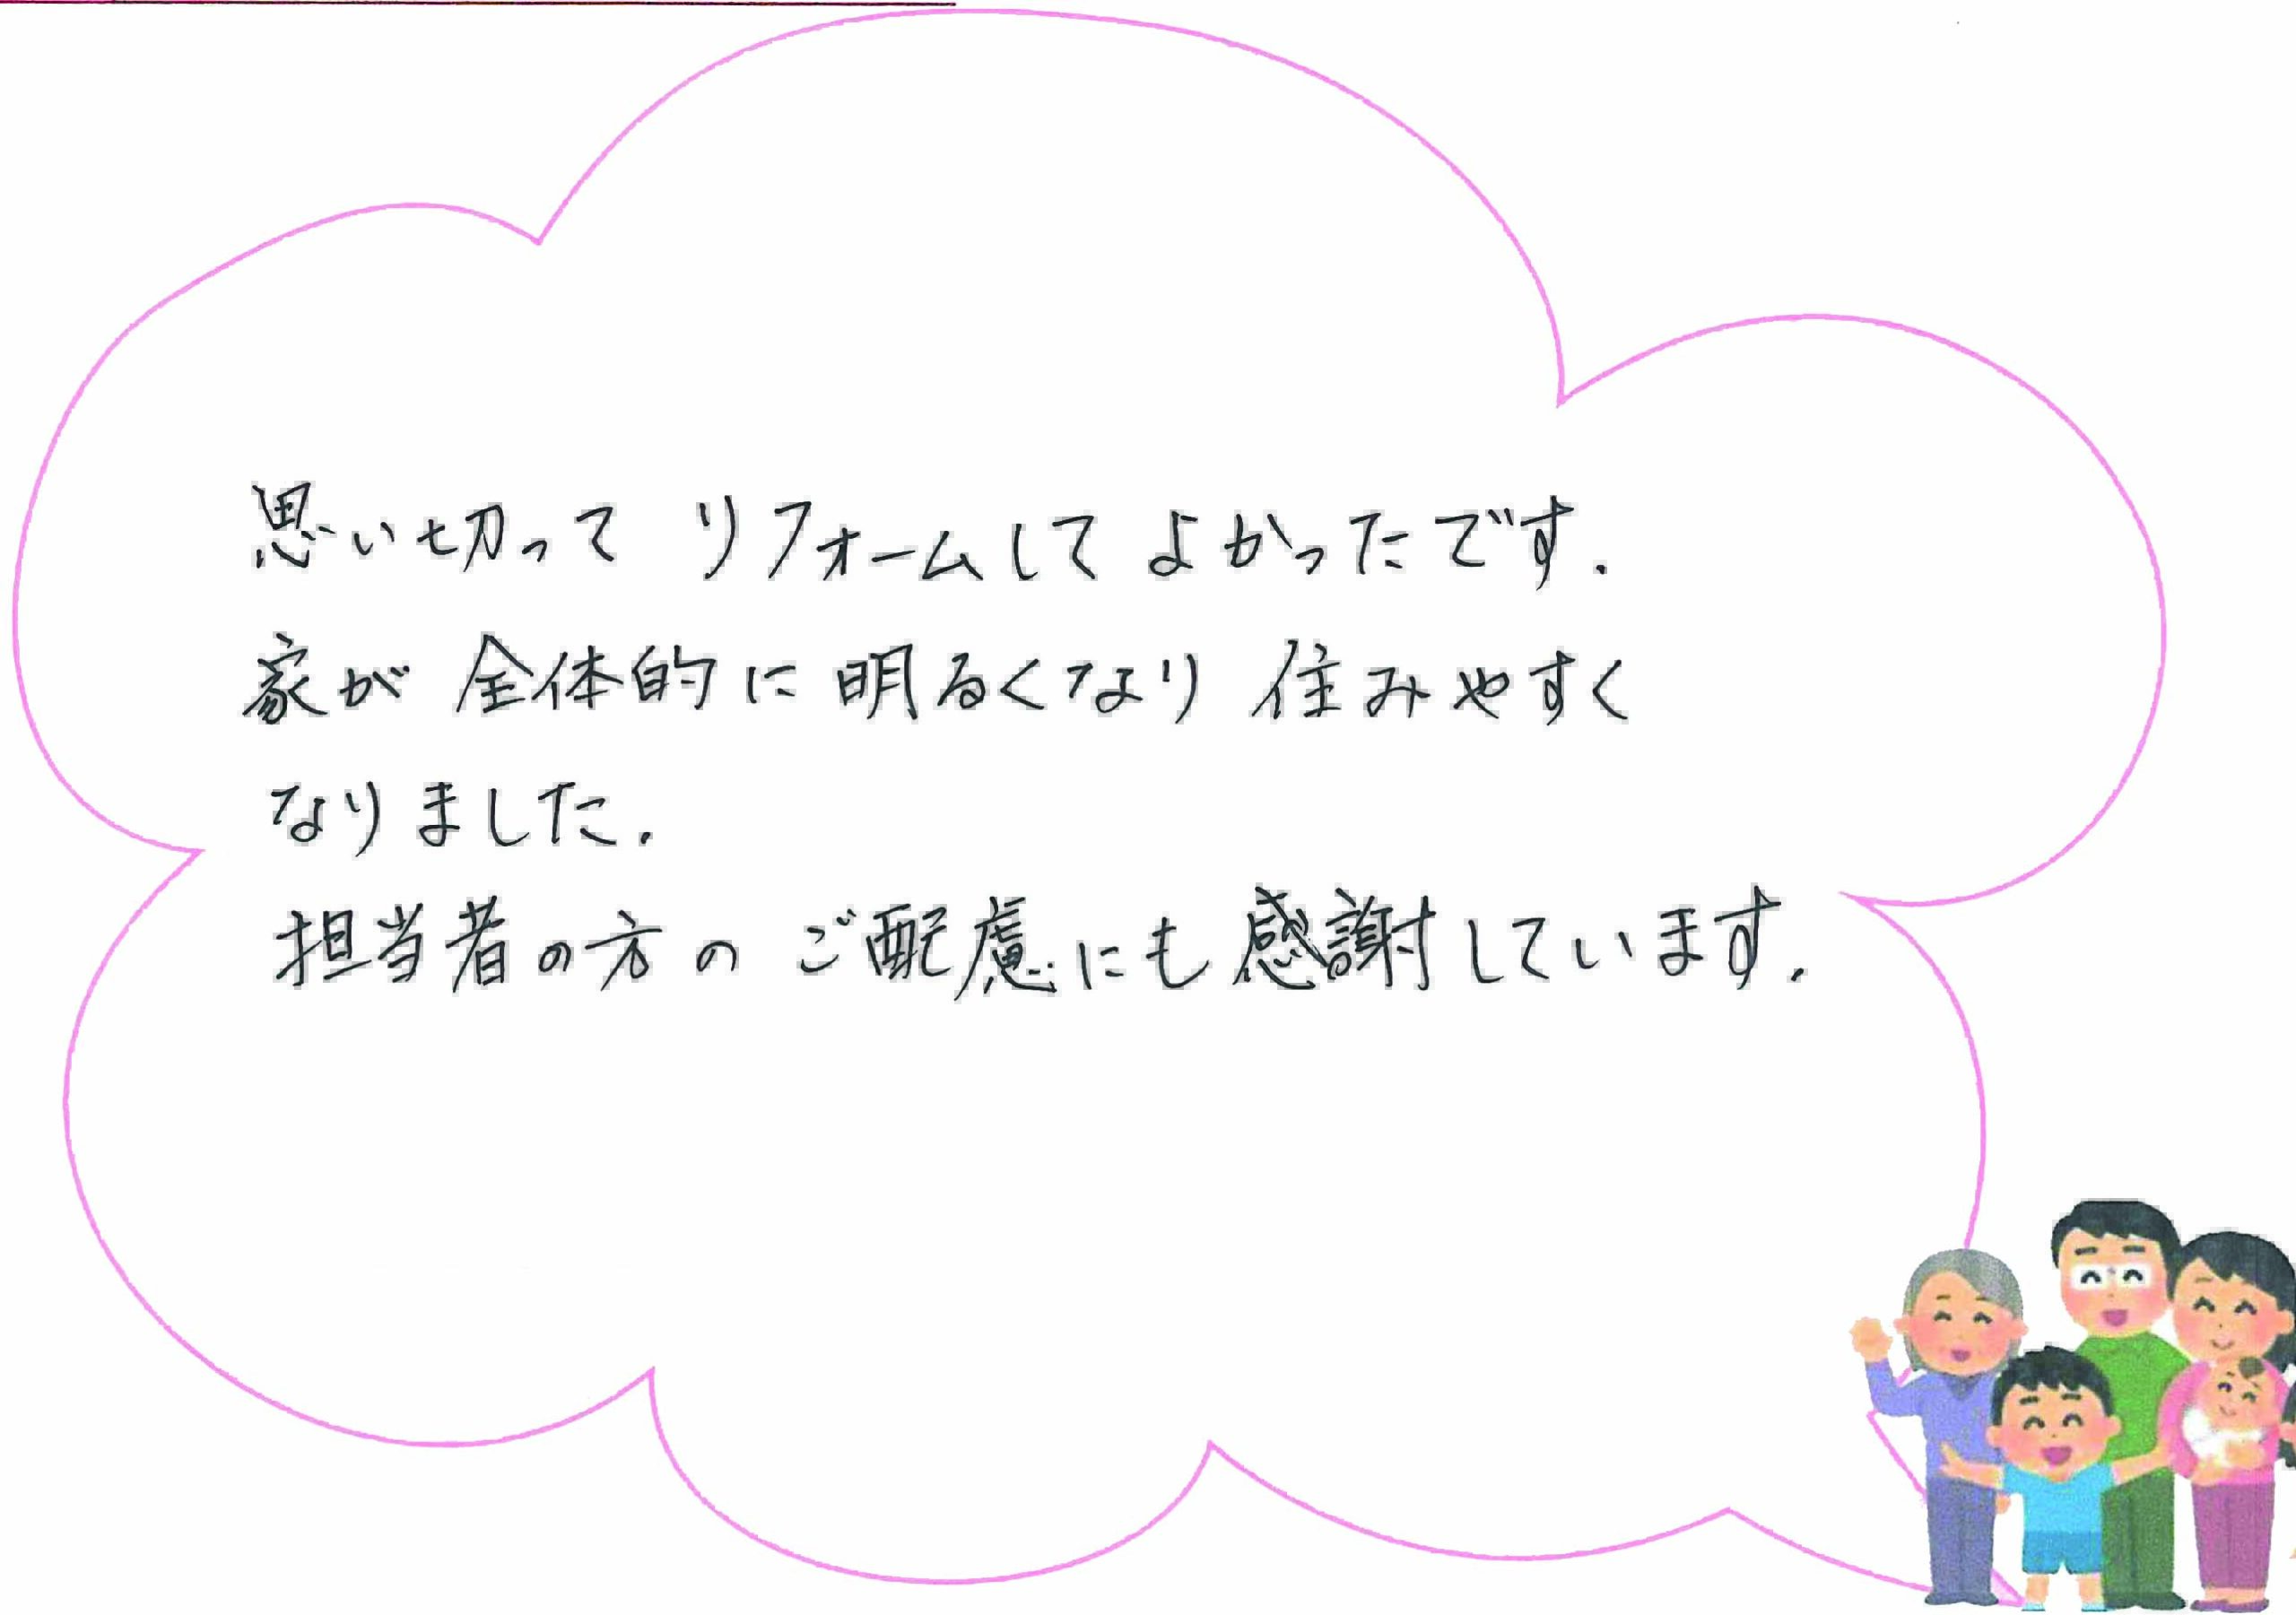 思い切って リフォームして よかったです.
家が 全体的に 明るくなり 住みやすく
なりました.
担当者の方の ご配慮にも 感謝しています.